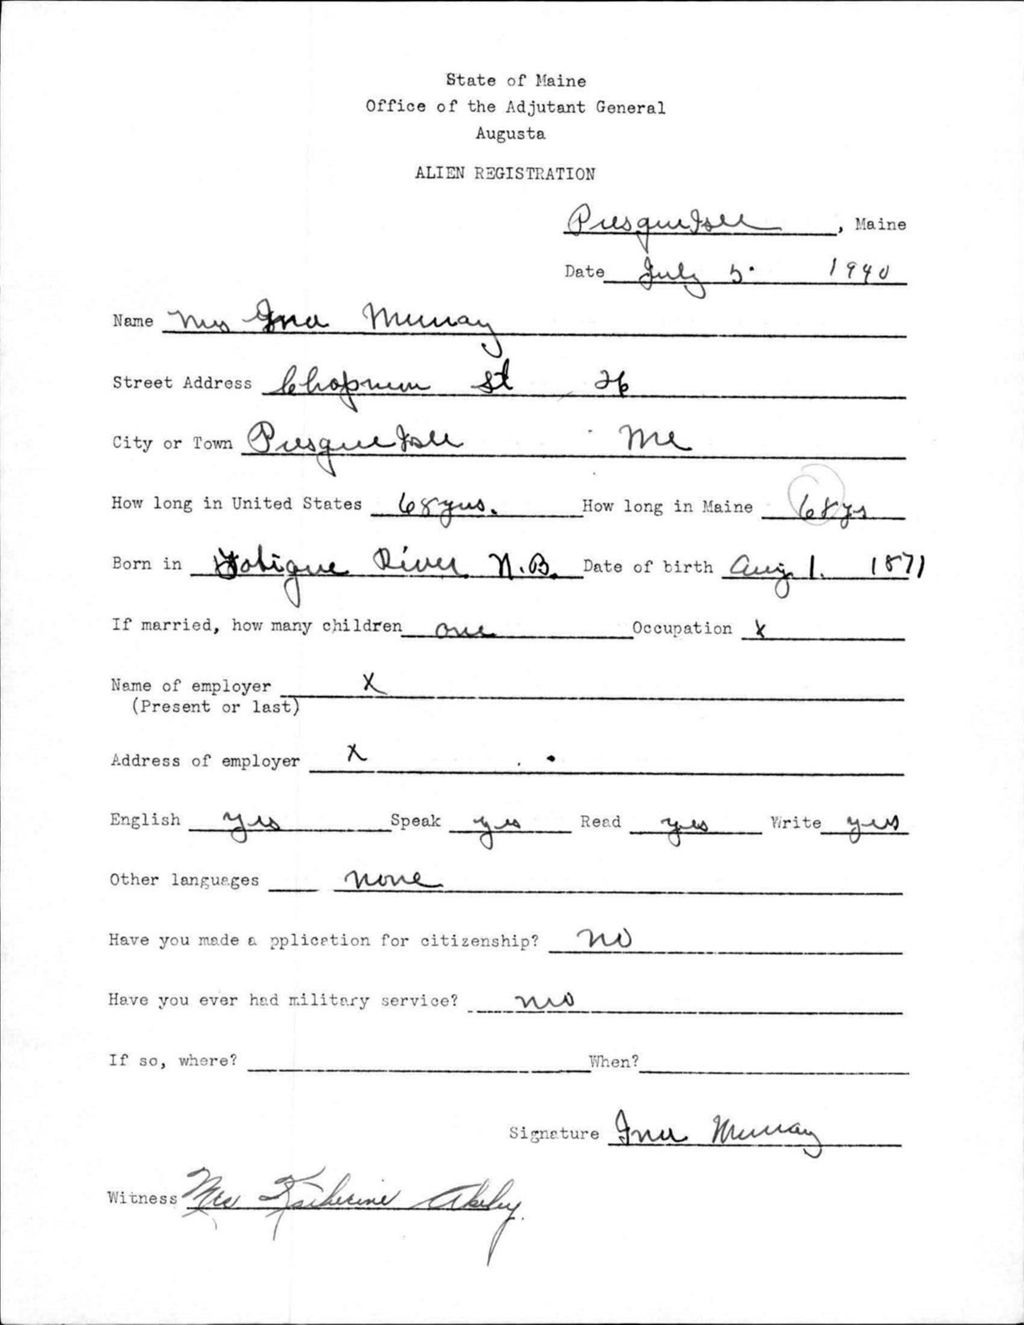 State of Maine
Office of the Adjutant General
Augusta
ALIEN REGISTRATION
Presque Isle, Maine
Date July 5. 1940
Name Mrs Ina Murray
Street Address Chapman St 26
City or Town Presque Isle Me
How long in United States 68 yrs. How long in Maine 68 ys
Born in Tobique River N.B. Date of birth Aug 1. 1871
If married, how many children one Occupation X
Name of employer X
(Present or last)
Address of employer X
English yes Speak yes Read yes Write yes
Other languages none
Have you made a pplication for citizenship? no
Have you ever had military service? no
If so, where? When?
Signature Ina Murray
Witness Mrs Katherine Akeley.